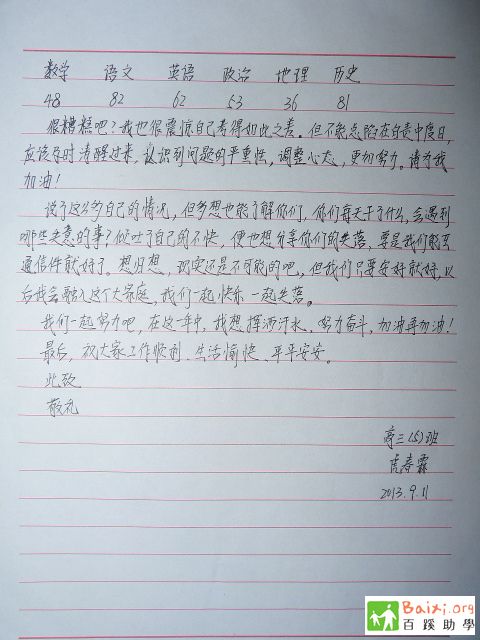 数学 语文 英语 政治 地理 历史
48 82 62 53 36 81
很糟糕吧?我也很震惊自己考得如此之差。但不能总陷在自责中度日,
应该及时清醒过来,认识到问题的严重性,调整心态,更加努力。请为我
加油!
说了这么多自己的情况,但多想也能了解你们,你们每天干了什么,会遇到
哪些失意的事?倾吐了自己的不快,便也想分享你们的失落,要是我们能互
通信件就好了。想归想,现实还是不可能的吧,但我们只要安好就好,以
后我会融入这个大家庭,我们一起快乐一起失落。
我们一起努力吧,在这一年中,我想挥洒汗水、努力奋斗,加油再加油!
最后,祝大家工作顺利、生活愉快、平平安安。
此致
敬礼
高三(5)班
春霖
2013.9.11
Baixi.org
百蹊助學